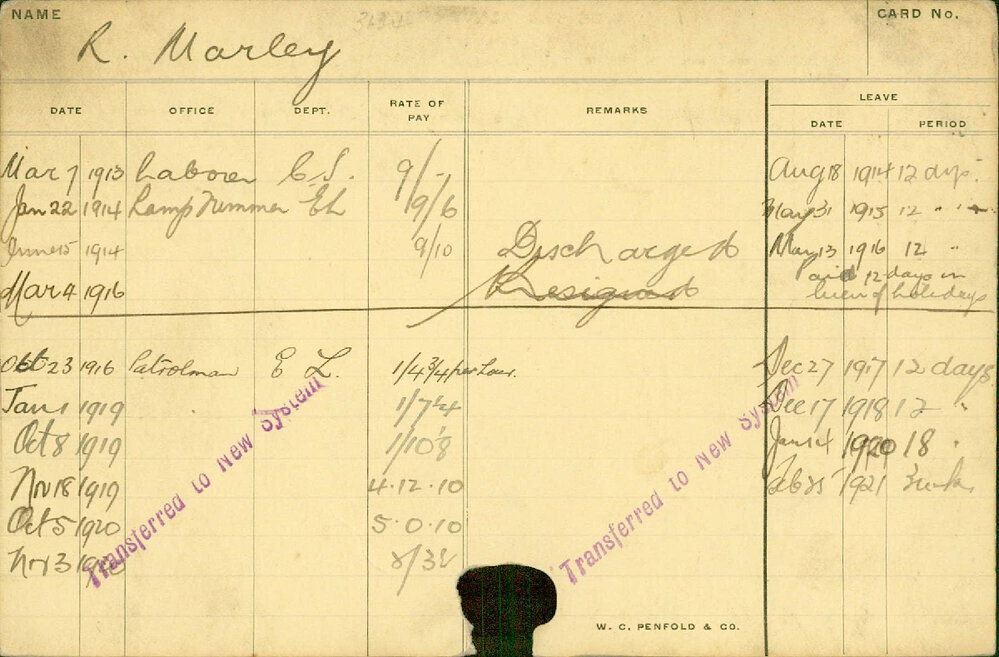 NAME
R. Marley
CARD No.
DATE OFFICE DEPT. RATE OF PAY REMARKS LEAVE
DATE PERIOD
Mar 7 1913 Laborer C.S. 9/- Aug 18 1914 12 dys.
Jan 22 1914 Lamp Trimmer EL 9/6 May 31 1915 12 " "
June 15 1914 9/10 Discharged May 13 1916 12 "
Mar 4 1916 Resigned paid 12 days in
lieu of holidays
Oct 23 1916 Patrolman E L. 1/4 3/4 per hour. Dec 27 1917 12 days
Jan 1 1919 Dec 17 1918 12 "
Oct 8 1919 Jan 14 1920 18 "
Nov 18 1919 4.12.10 Feb 25 1921
Oct 5 1920 5.0.10
Nov 3
Transferred to New System
Transferred to New System
W. C. PENFOLD & CO.